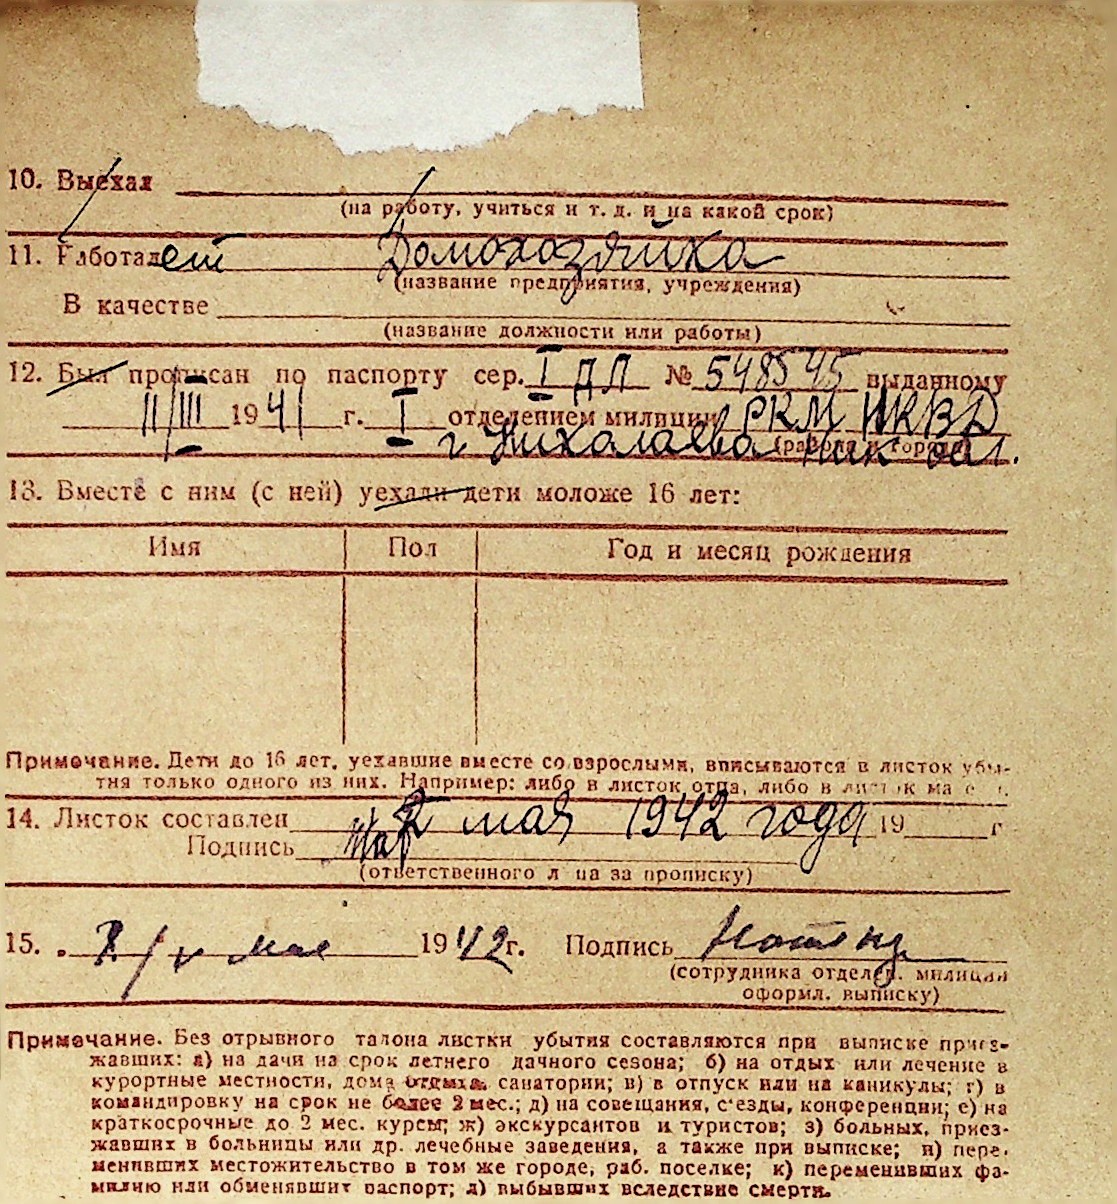 10. Выехал
(на работу, учиться и т. д. и на какой срок)
11. Работает Домохозяйка
(название предприятия, учреждения)
В качестве
(название должности или работы)
12. Был прописан по паспорту сер. I ДЛ № 548545 выданному
11/III 1941 г. I отделением милиции РКМ НКВД
г Николаева Ник обл.
(района и города)
13. Вместе с ним (с ней) уехали дети моложе 16 лет:
Имя Пол Год и месяц рождения
Примечание. Дети до 16 лет, уехавшие вместе со взрослыми, вписываются в листок убы-
тия только одного из них. Например: либо в листок отца, либо в листок ма
14. Листок составлен 2 мая 1942 года 19 г
Подпись
(ответственного лица за прописку)
15. мая 1942 г. Подпись
(сотрудника отделен. милиции
оформл. выписку)
Примечание. Без отрывного талона листки убытия составляются при выписке приез-
жавших: а) на дачи на срок летнего дачного сезона; б) на отдых или лечение в
курортные местности, дома отдыха, санатории; в) в отпуск или на каникулы; г) в
командировку на срок не более 2 мес.; д) на совещания, с'езды, конференции; е) на
краткосрочные до 2 мес. курсы; ж) экскурсантов и туристов; з) больных, приез-
жавших в больницы или др. лечебные заведения, а также при выписке; и) пере-
менивших местожительство в том же городе, раб. поселке; к) переменивших фа-
милию или обменявших паспорт; л) выбывших вследствие смерти.